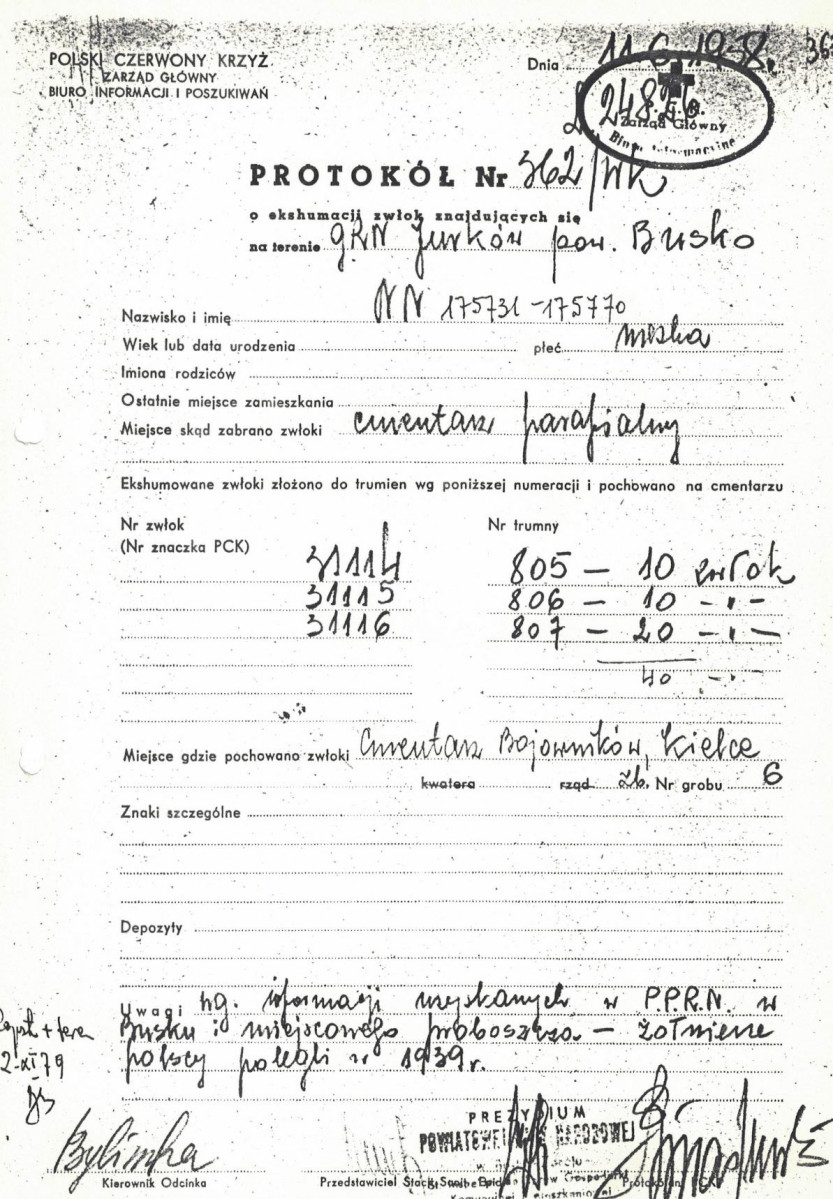 POLSKI CZERWONY KRZYŻ
ZARZĄD GŁÓWNY
BIURO INFORMACJI I POSZUKIWAŃ
Dnia 11.6.1958.
Zarząd Główny
PROTOKÓŁ Nr 362/WK
o ekshumacji zwłok znajdujących się
na terenie GRN Jurków pow. Busko
Nazwisko i imię NN 175731-175770
Wiek lub data urodzenia płeć męska
Imiona rodziców
Ostatnie miejsce zamieszkania
Miejsce skąd zabrano zwłoki cmentarz parafialny
Ekshumowane zwłoki złożono do trumien wg poniższej numeracji i pochowano na cmentarzu
Nr zwłok Nr trumny
(Nr znaczka PCK)
31114 805 — 10 zwłok
31115 806 — 10 -"-
31116 807 — 20 -"-
40 -"-
Miejsce gdzie pochowano zwłoki Cmentarz Bojowników, Kielce
kwatera rząd zb. Nr grobu 6
Znaki szczególne
Depozyty
Uwagi wg. informacji uzyskanych w P.P.R.N. w
Busku i miejscowego proboszcza — żołnierze
polscy polegli w 1939 r.
2-XI 79
PREZYDIUM
POWIATOWEJ NARODOWEJ
Bylinka
Kierownik Odcinka Przedstawiciel Stacji Sanit.